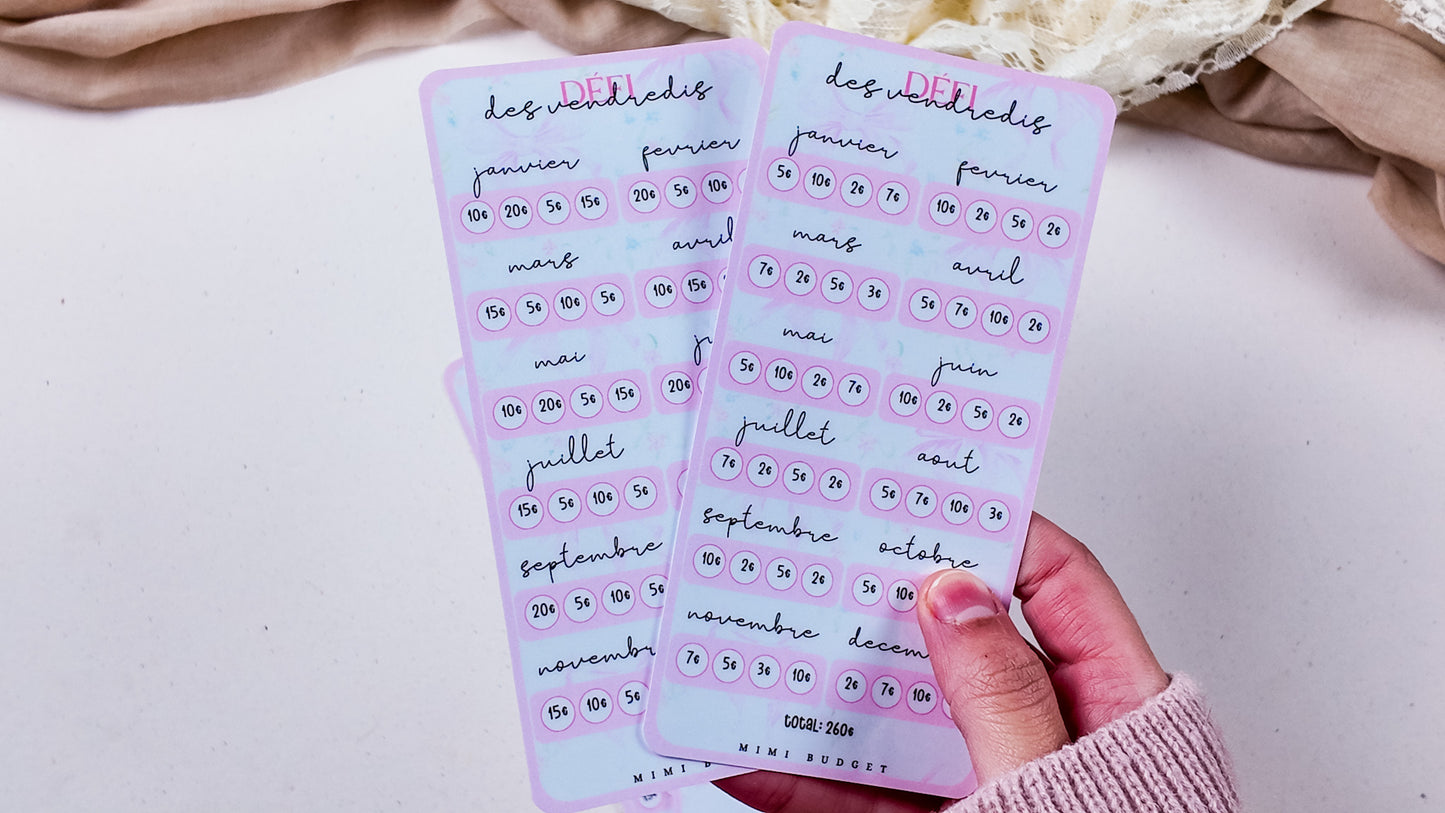 DÉFI
des vendredis
janvier fevrier
10€ 20€ 5€ 15€ 20€ 5€ 10€
mars avril
15€ 5€ 10€ 5€ 10€ 15€
mai
10€ 20€ 5€ 15€ 20€
juillet
15€ 5€ 10€ 5€
septembre
20€ 5€ 10€ 5€
novembre
15€ 10€ 5€
MIMI
DÉFI
des vendredis
janvier fevrier
5€ 10€ 2€ 7€ 10€ 2€ 5€ 2€
mars avril
7€ 2€ 5€ 3€ 5€ 7€ 10€ 2€
mai juin
5€ 10€ 2€ 7€ 10€ 2€ 5€ 2€
juillet aout
7€ 2€ 5€ 2€ 5€ 7€ 10€ 3€
septembre octobre
10€ 2€ 5€ 2€ 5€ 10€
novembre decem
7€ 5€ 3€ 10€ 2€ 7€ 10€
total: 260€
MIMI BUDGET